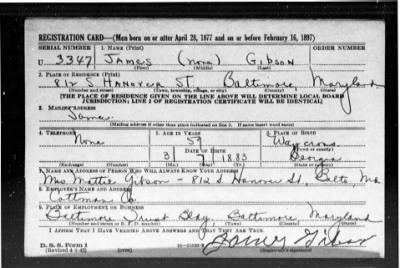 REGISTRATION CARD—(Men born on or after April 28, 1877 and on or before February 16, 1897)
SERIAL NUMBER 1. NAME (Print) ORDER NUMBER
U 3347 JAMES (none) GIPSON
(First) (Middle) (Last)
2. PLACE OF RESIDENCE (Print)
812 S HANOVER ST. Baltimore Maryland
(Number and street) (Town, township, village, or city) (County) (State)
[THE PLACE OF RESIDENCE GIVEN ON THE LINE ABOVE WILL DETERMINE LOCAL BOARD
JURISDICTION; LINE 2 OF REGISTRATION CERTIFICATE WILL BE IDENTICAL]
3. MAILING ADDRESS
Same
[Mailing address if other than place indicated on line 2. If same insert word same]
4. TELEPHONE 5. AGE IN YEARS 6. PLACE OF BIRTH
None 59 Waycross
DATE OF BIRTH (Town or county)
3 7 1883 Georgia
(Exchange) (Number) (Mo.) (Day) (Yr.) (State or country)
7. NAME AND ADDRESS OF PERSON WHO WILL ALWAYS KNOW YOUR ADDRESS
Mrs. Mattie Gibson - 812 S. Hanover St, Balto, Md
8. EMPLOYER'S NAME AND ADDRESS
Cottman Co.
9. PLACE OF EMPLOYMENT OR BUSINESS
Baltimore Trust Bldg, Baltimore, Maryland
(Number and street or R. F. D. number) (Town) (County) (State)
I AFFIRM THAT I HAVE VERIFIED ABOVE ANSWERS AND THAT THEY ARE TRUE.
D. S. S. Form 1
(Revised 4-1-42) James Gibson